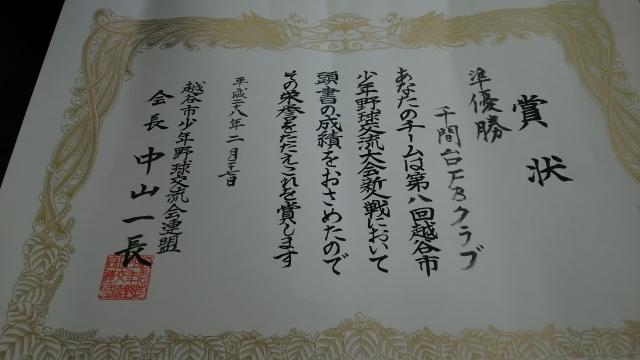 賞状
準優勝
千間台FBクラブ
あなたのチームは第八回越谷市
少年野球交流大会新人戦において
頭書の成績をおさめたので
その栄誉をたたえこれを賞します
平成二八年二月二七日
越谷市少年野球交流会連盟
会長 中山一長